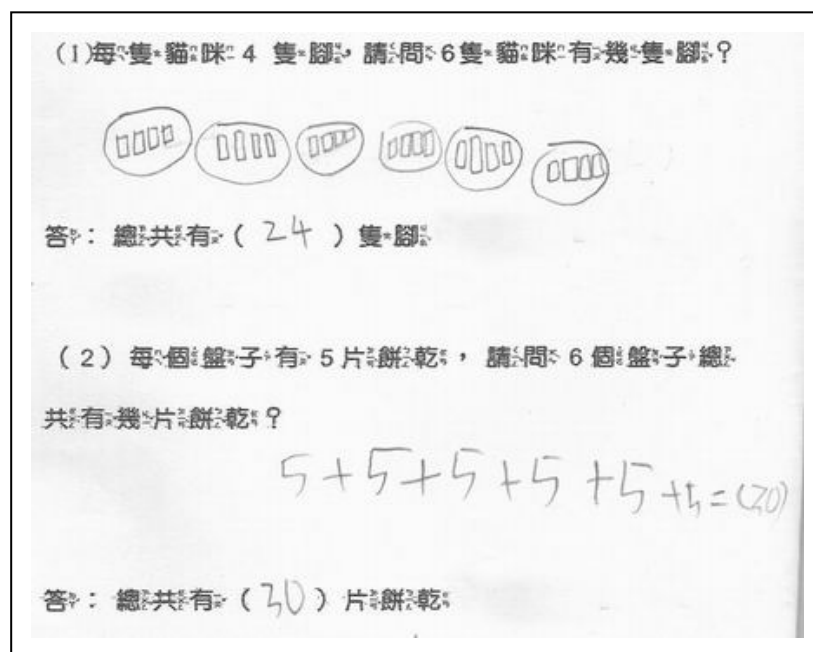 (1)每隻貓咪 4 隻腳，請問 6隻貓咪有幾隻腳？
答：總共有( 24 )隻腳
(2)每個盤子有 5 片餅乾，請問 6 個盤子總
共有幾片餅乾？
5+5+5+5+5+5=(30)
答：總共有(30)片餅乾